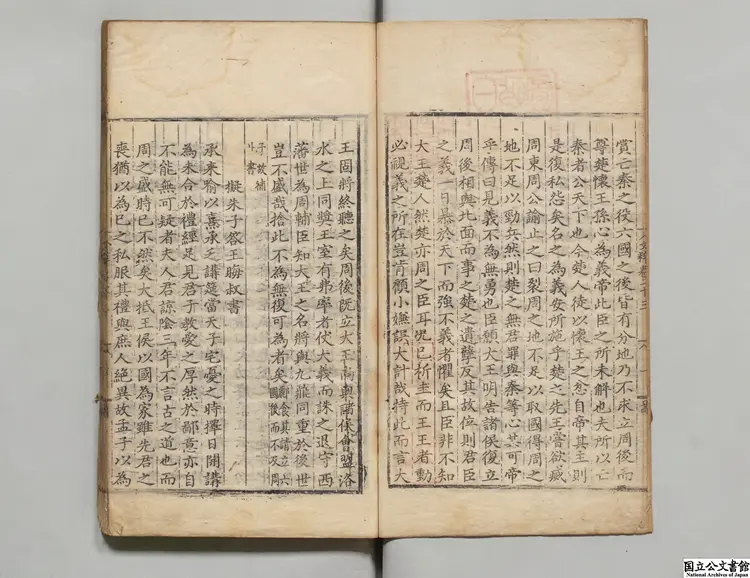 賞亡秦之役六國之後皆有分地乃不求立周後而
尊楚懷王孫心為義帝此臣之所未解也夫所以亡
秦者公天下也今楚人徒以懷王之忿自帝其主則
是復私怨矣名之為義安所施乎楚之先王嘗欲臧
周東周公諭止之曰裂周之地不足以取國得周之
地不足以勁兵然則楚之無君罪與秦等心其可帝
乎傳曰見義不為無勇也臣願大王明告諸侯復立
周後相與北面而事之楚之遺孽反其故位則君臣
之義一日暴於天下而強不義者懼矣且臣非不知
大王楚人然楚亦周之臣耳呪已析圭而王王者動
必視義之所在豈肯顧小嫌誤大計哉持此而言大
王固將終聽之矣周後既立大王高與諸侯會盟洛
水之上同奬王室有弗率者仗大義而誅之退守西
藩世為周輔臣知大王之名將與九鼎同重於後世
豈不盛哉捨此不為無復可為者矣
酈食其請立六
國後而不及周
于故補
斗書
擬朱子答王晦叔書
承來喻以熹承乏講筵當天子宅憂之時擇日開講
為未合於禮經足見君子教愛之厚然於鄙意亦自
不能無可疑者夫人君諒陰三年不言古之道也而
周之盛時已不然矣大抵王侯以國為家雖先君之
喪猶以為已之私服其禮與庶人絕異故孟子以為
国立公文書館
National Archives of Japan